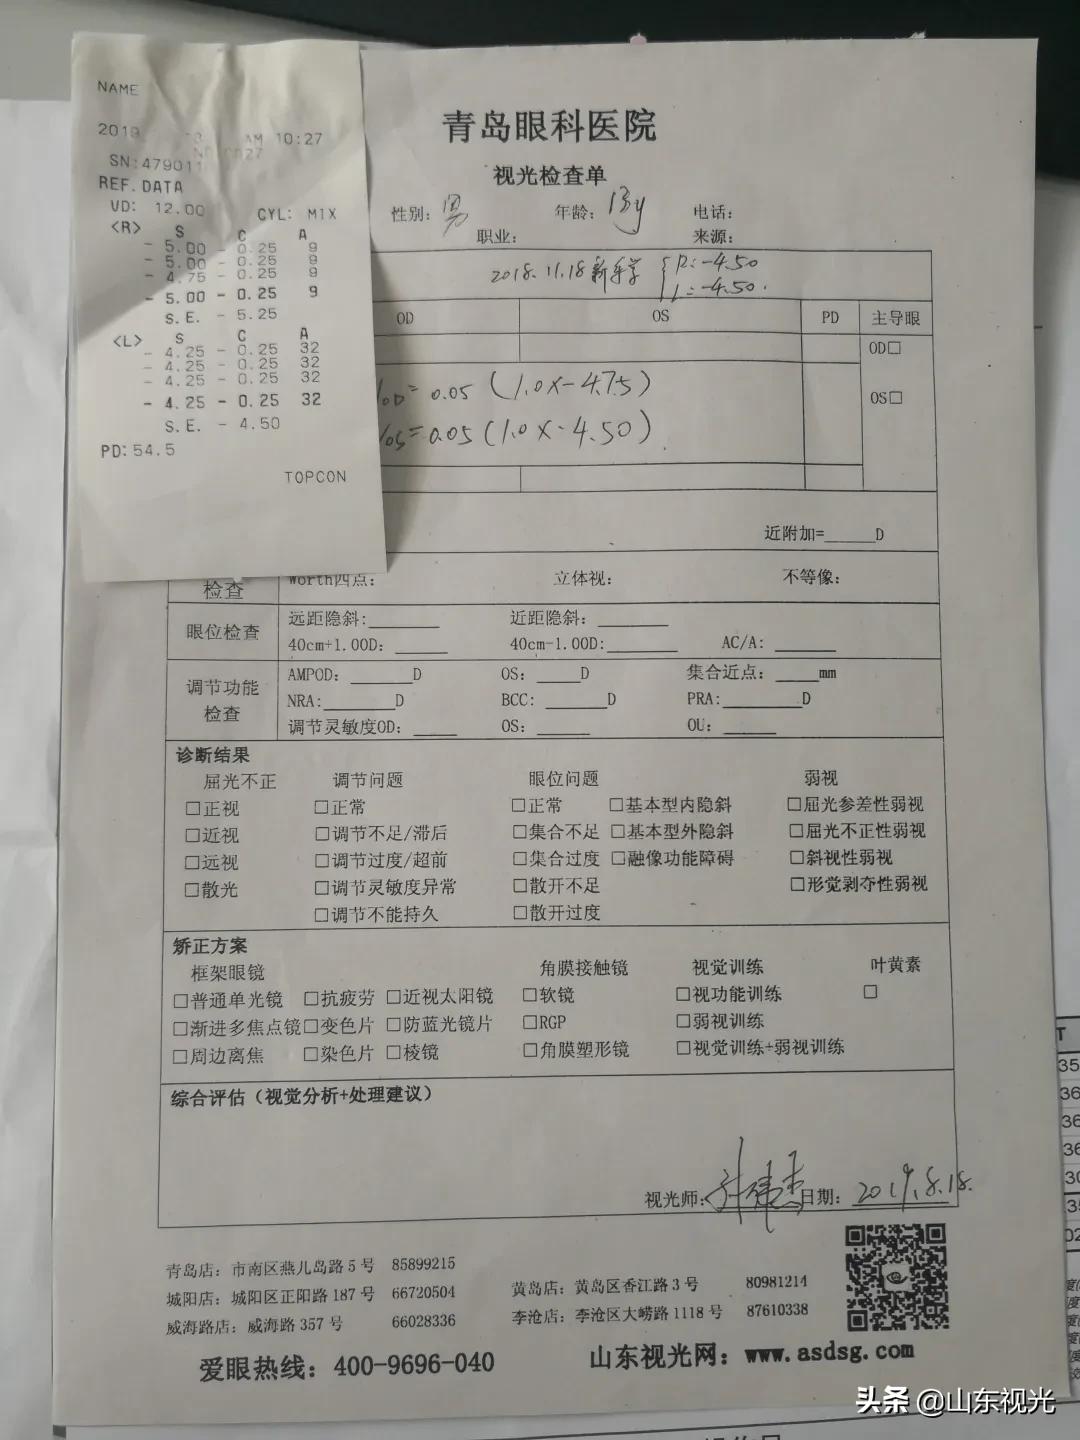 NAME
2019 AM 10:27
SN:479011
REF.DATA
VD: 12.00 CYL: MIX
<R> S C A
- 5.00 - 0.25 9
- 5.00 - 0.25 9
- 4.75 - 0.25 9
- 5.00 - 0.25 9
S.E. - 5.25
<L> S C A
- 4.25 - 0.25 32
- 4.25 - 0.25 32
- 4.25 - 0.25 32
- 4.25 - 0.25 32
S.E. - 4.50
PD:54.5
TOPCON
青岛眼科医院
视光检查单
性别: 男 年龄: 13y 电话:
职业: 来源:
2018.11.18 R:-4.50
L:-4.50.
OD OS PD 主导眼
OD□
OD=0.05 (1.0x-4.75)
OS□
OS=0.05 (1.0x-4.50)
近附加=______D
检查 Worth四点: 立体视: 不等像:
眼位检查 远距隐斜:________ 近距隐斜: ________
40cm+1.00D: ______ 40cm-1.00D:________ AC/A: _______
调节功能检查 AMPOD: _______D OS: _____D 集合近点: _____mm
NRA:________D BCC: _______D PRA:_________D
调节灵敏度OD: _____ OS: ______ OU: ______
诊断结果
屈光不正 调节问题 眼位问题 弱视
□正视 □正常 □正常 □基本型内隐斜 □屈光参差性弱视
□近视 □调节不足/滞后 □集合不足 □基本型外隐斜 □屈光不正性弱视
□远视 □调节过度/超前 □集合过度 □融像功能障碍 □斜视性弱视
□散光 □调节灵敏度异常 □散开不足 □形觉剥夺性弱视
□调节不能持久 □散开过度
矫正方案
框架眼镜 角膜接触镜 视觉训练 叶黄素
□普通单光镜 □抗疲劳 □近视太阳镜 □软镜 □视功能训练 □
□渐进多焦点镜 □变色片 □防蓝光镜片 □RGP □弱视训练
□周边离焦 □染色片 □棱镜 □角膜塑形镜 □视觉训练+弱视训练
综合评估（视觉分析+处理建议）
视光师: 日期: 2019.8.18.
青岛店: 市南区燕儿岛路 5 号 85899215
城阳店: 城阳区正阳路 187 号 66720504
威海路店: 威海路 357 号 66028336
黄岛店: 黄岛区香江路 3 号 80981214
李沧店: 李沧区大崂路 1118 号 87610338
爱眼热线: 400-9696-040
山东视光网: www.asdsg.com
头条 @山东视光